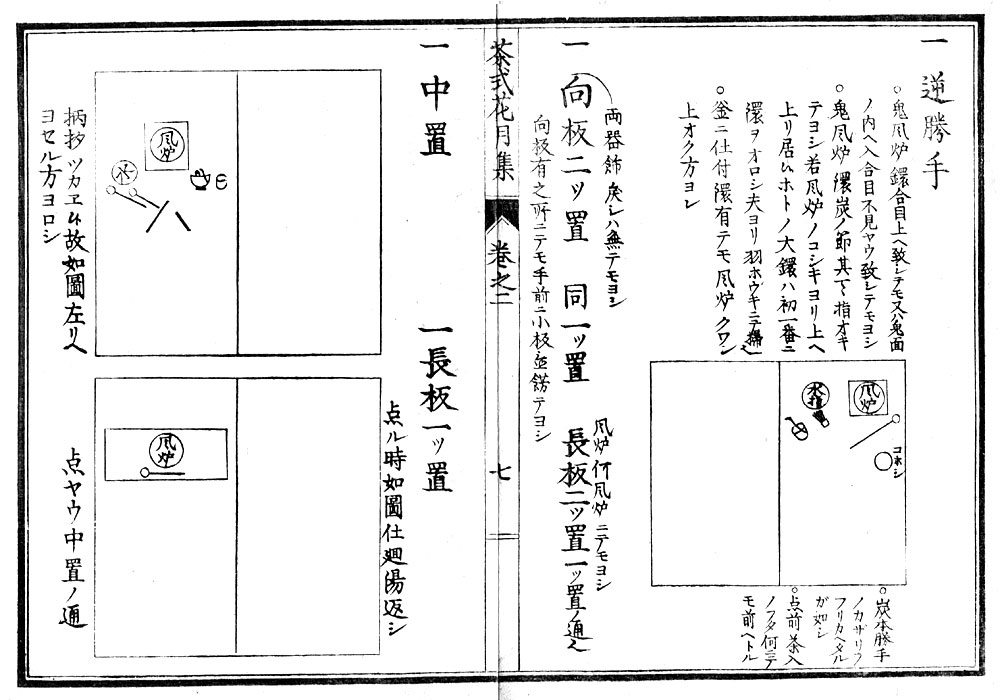 一逆勝手
○鬼風炉鐶合目上ヘ致シテモ又ハ鬼面
ノ内ヘ入合目不見ヤウ致シテモヨシ
○鬼風炉鐶炭ノ節其下ヘ指オキ
テヨシ若風炉ノコシキヨリ上ヘ
上リ居ムホトノ大鐶ハ初一番ニ
鐶ヲオロシ夫ヨリ羽ホウキニテ掃ヘ
○釜ニ仕付鐶有テモ風炉クワン
上オク方ヨレ
風炉
水指
コホシ
○炭本勝手
ノカザリヲ
フリカヘタル
が如シ
○点前茶入
ノフタ何ニテ
モ前ヘトル
両器飾戻シハ無テモヨシ
一向板二ツ置 同一ツ置 長板二ツ置一ツ置ノ通ヘ
風炉何風炉ニテモヨシ
向板有之所ニテモ手前ニ小板並餝テヨシ
茶式花月集 巻之二 七
一中置
風炉
水
柄杓ツカエム故如圖左リヘ
ヨセル方ヨロシ
一長板一ツ置
点ル時如圖仕廻湯返シ
風炉
点ヤウ中置ノ通